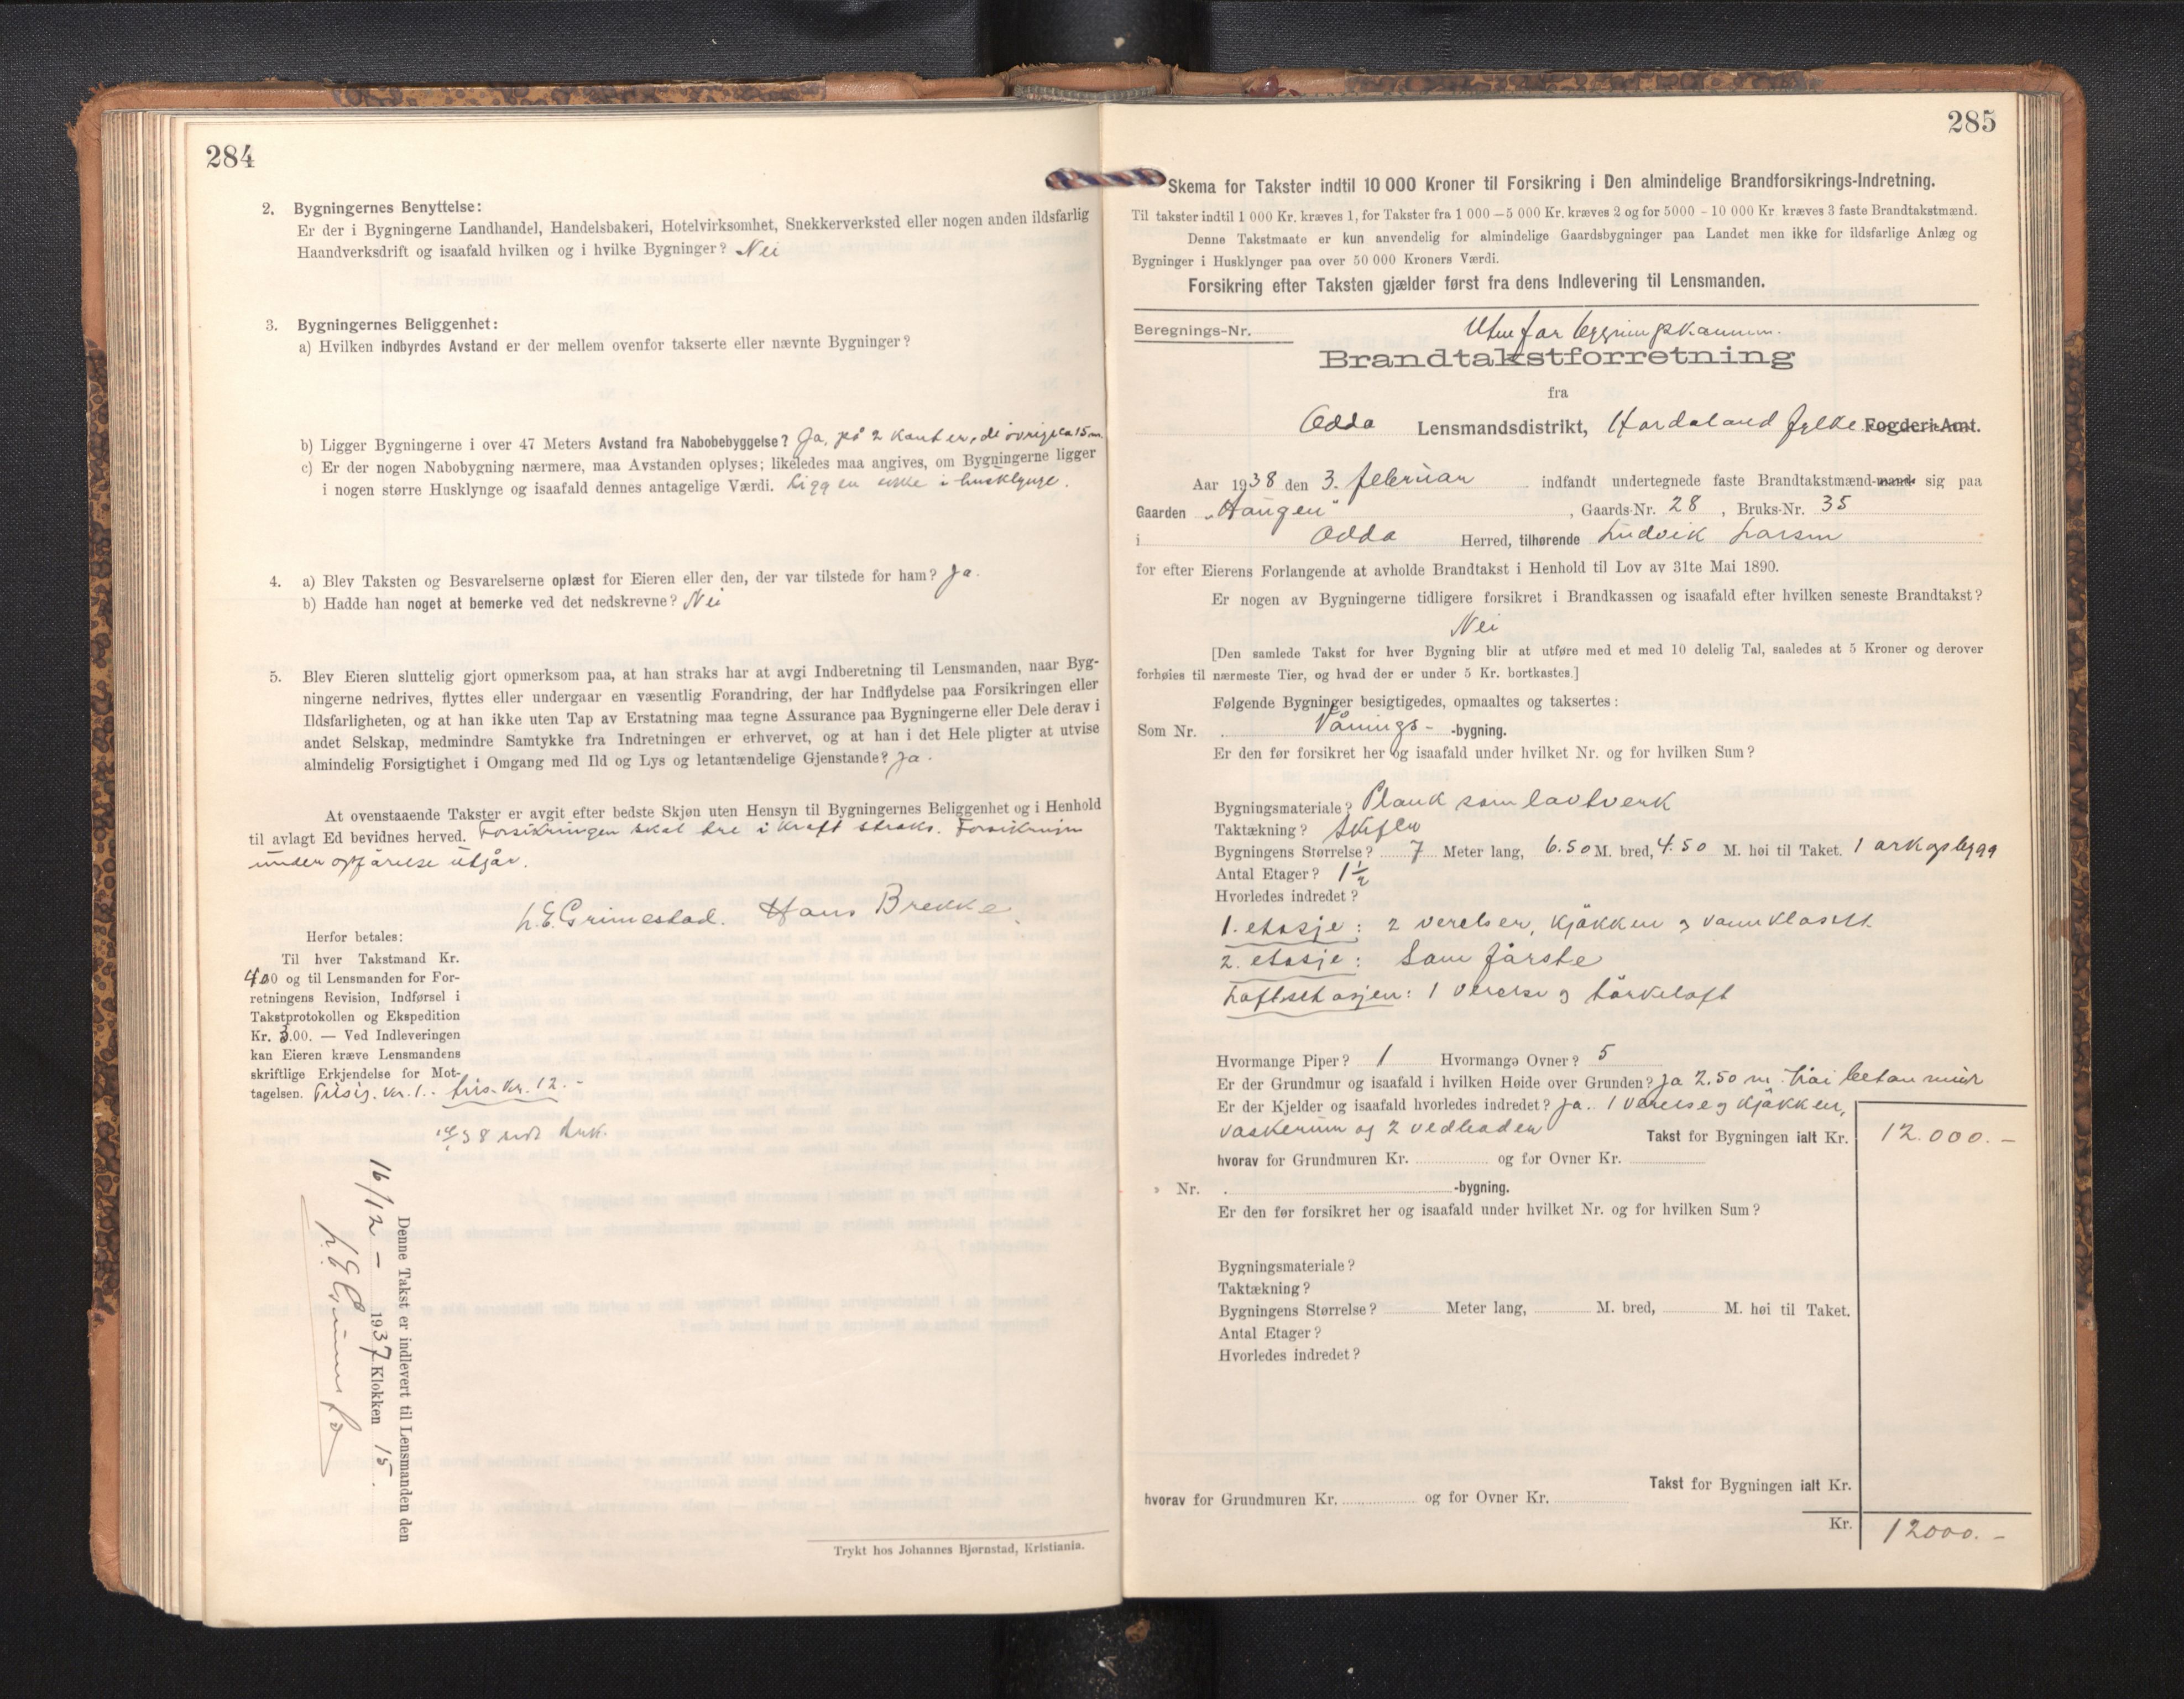 284
2. Bygningernes Benyttelse:
Er der i Bygningerne Landhandel, Handelsbakeri, Hotelvirksomhet, Snekkerverksted eller nogen anden ildsfarlig
Haandverksdrift og isaafald hvilken og i hvilke Bygninger? Nei
3. Bygningernes Beliggenhet:
a) Hvilken indbyrdes Avstand er der mellem ovenfor takserte eller nævnte Bygninger?
b) Ligger Bygningerne i over 47 Meters Avstand fra Nabobebyggelse? Ja, på 2 kanter, de øvrige ca 15 m.
c) Er der nogen Nabobygning nærmere, maa Avstanden oplyses; likeledes maa angives, om Bygningerne ligger
i nogen større Husklynge og isaafald dennes antagelige Værdi. Ligg en ikke i husklynge.
4. a) Blev Taksten og Besvarelserne oplæst for Eieren eller den, der var tilstede for ham? Ja.
b) Hadde han noget at bemerke ved det nedskrevne? Nei
5. Blev Eieren sluttelig gjort opmerksom paa, at han straks har at avgi Indberetning til Lensmanden, naar Byg-
ningerne nedrives, flyttes eller undergaar en væsentlig Forandring, der har Indflydelse paa Forsikringen eller
Ildsfarligheten, og at han ikke uten Tap av Erstatning maa tegne Assurance paa Bygningerne eller Dele derav i
andet Selskap, medmindre Samtykke fra Indretningen er erhvervet, og at han i det Hele pligter at utvise
almindelig Forsigtighet i Omgang med Ild og Lys og letantændelige Gjenstande? Ja.
At ovenstaaende Takster er avgit efter bedste Skjøn uten Hensyn til Bygningernes Beliggenhet og i Henhold
til avlagt Ed bevidnes herved. Forsikringen skal tre i kraft straks. Forsikringen
under opførelse utgår.
L.E. Grimestad. Hans Brekke.
Herfor betales:
Til hver Takstmand Kr.
4.00 og til Lensmanden for For-
retningens Revision, Indførsel i
Takstprotokollen og Ekspedition
Kr. 3.00. — Ved Indleveringen
kan Eieren kræve Lensmandens
skriftlige Erkjendelse for Mot-
tagelsen. Tilsig. kr. 1.- tils. kr. 12.-
Denne Takst er indlevert til Lensmanden den
16/12 – 1937 Klokken 15.
Trykt hos Johannes Bjørnstad, Kristiania.
285
Skema for Takster indtil 10 000 Kroner til Forsikring i Den almindelige Brandforsikrings-Indretning.
Til takster indtil 1 000 Kr. kræves 1, for Takster fra 1 000 — 5 000 Kr. kræves 2 og for 5000 - 10 000 Kr. kræves 3 faste Brandtakstmænd.
Denne Takstmaate er kun anvendelig for almindelige Gaardsbygninger paa Landet men ikke for ildsfarlige Anlæg og
Bygninger i Husklynger paa over 50 000 Kroners Værdi.
Forsikring efter Taksten gjælder først fra dens Indlevering til Lensmanden.
Beregnings-Nr.
Utenfor bygningskommun.
Brandtakstforretning
fra
Odda Lensmandsdistrikt, Hordaland fylke Fogderi Amt.
Aar 1938 den 3. februar indfandt undertegnede faste Brandtakstmænd-mand sig paa
Gaarden "Haugen", Gaards-Nr. 28, Bruks-Nr. 35
i Odda Herred, tilhørende Ludvik Larsen
for efter Eierens Forlangende at avholde Brandtakst i Henhold til Lov av 31te Mai 1890.
Er nogen av Bygningerne tidligere forsikret i Brandkassen og isaafald efter hvilken seneste Brandtakst?
Nei
[Den samlede Takst for hver Bygning blir at utføre med et med 10 delelig Tal, saaledes at 5 Kroner og derover
forhøies til nærmeste Tier, og hvad der er under 5 Kr. bortkastes.]
Følgende Bygninger besigtigedes, opmaaltes og taksertes:
Som Nr. . Vånings- -bygning.
Er den før forsikret her og isaafald under hvilket Nr. og for hvilken Sum?
Bygningsmateriale? Plank som lavtverk
Taktækning? Skifer
Bygningens Størrelse? 7 Meter lang, 6.50 M. bred, 4.50 M. høi til Taket. 1 arkopbygg
Antal Etager? 1 1/2
Hvorledes indredet?
1. etasje: 2 verelser, kjøkken og vannklosett
2. etasje: Som første
Loftsetasjen: 1 verelse og tørkeloft
Hvormange Piper? 1 Hvormange Ovner? 5
Er der Grundmur og isaafald i hvilken Høide over Grunden? Ja 2.50 m. høi betonmur
Er der Kjelder og isaafald hvorledes indredet? Ja. 1 verelse og kjøkken,
vaskerum og 2 vedboder Takst for Bygningen ialt Kr. 12.000.–
hvorav for Grundmuren Kr. og for Ovner Kr.
" Nr. . -bygning.
Er den før forsikret her og isaafald under hvilket Nr. og for hvilken Sum?
Bygningsmateriale?
Taktækning?
Bygningens Størrelse? Meter lang, M. bred, M. høi til Taket.
Antal Etager?
Hvorledes indredet?
Takst for Bygningen ialt Kr.
hvorav for Grundmuren Kr. og for Ovner Kr.
Kr. 12000.–